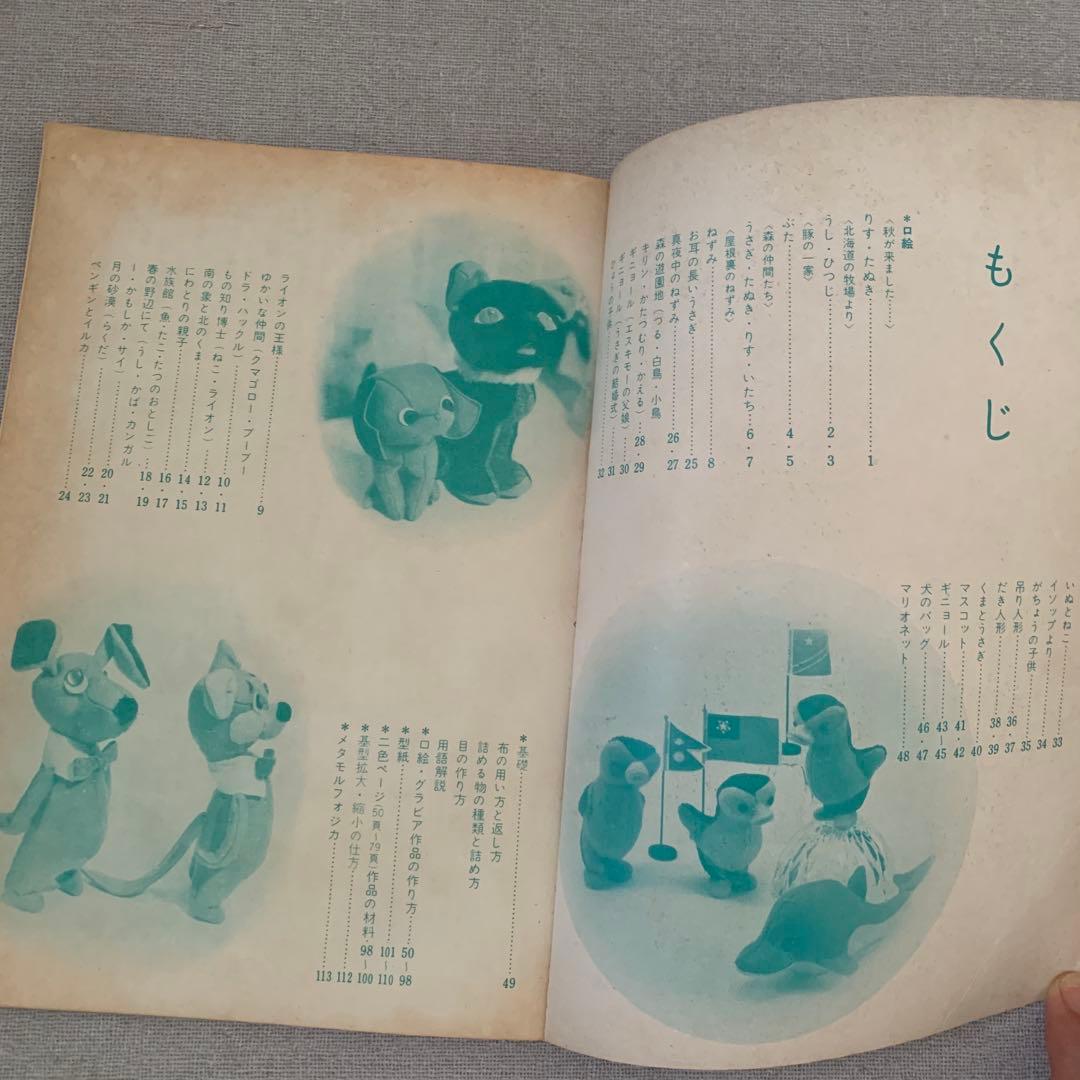 もくじ
＊口絵
〈秋が来ました……〉
りす・たぬき……1
〈北海道の牧場より〉
うし・ひつじ……2・3
〈豚の一家〉
ぶた……4・5
〈森の仲間たち〉
うさぎ・たぬき・りす・いたち……6・7
〈屋根裏のねずみ〉
ねずみ……8
お耳の長いうさぎ……25
真夜中のねずみ……26・27
森の遊園地（つる・白鳥・小鳥
キリン・かたつむり・かえる）…28・29
ギニョール（エスキモーの父娘）……30
ギニョール（うさぎの結婚式）……31
32
いぬとねこ……33
イソップより……34
がちょうの子供……35
吊り人形……36・37
だき人形……38・39
くまとうさぎ……40
マスコット……41・42
ギニョール……43〜45
犬のバッグ……46・47
マリオネット……48
ライオンの王様……9
ゆかいな仲間（クマゴロー・ブーブー
ドラ・ハックル）……10・11
もの知り博士（ねこ・ライオン）……12・13
南の象と北のくま……14・15
にわとりの親子……16・17
水族館（魚・たこ・たつのおとしご）…18・19
春の野辺にて（うし・かば・カンガル
ー・かもしか・サイ）……20・21
月の砂漠（らくだ）……22・23
ペンギンとイルカ……24
＊基礎……49
布の用い方と返し方
詰める物の種類と詰め方
目の作り方
用語解説
＊口絵・グラビア作品の作り方……50〜98
＊型紙……101〜110
＊二色ページ（50頁〜79頁）作品の材料・98〜100
＊基型拡大・縮小の仕方……112
＊メタモルフォジカ……113